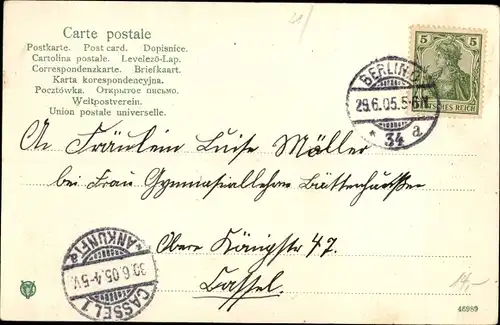 Carte postale
Postkarte. Post card. Dopisnice.
Cartolina postale. Levelező-Lap.
Correspondenzkarte. Briefkaart.
Karta korespondencyjna.
Pocztówka. Открытое письмо.
Weltpostverein.
Union postale universelle.
5 5
DEUTSCHES REICH
BERLIN
29.6.05.5-6N
* 34 a.
An Fräulein Luise Müller
bei Frau Gymnasiallehrer
Obere Königstr 47.
Cassel.
CASSEL 1
30.6.05.4-5V.
*ANKUNFT
a
46989